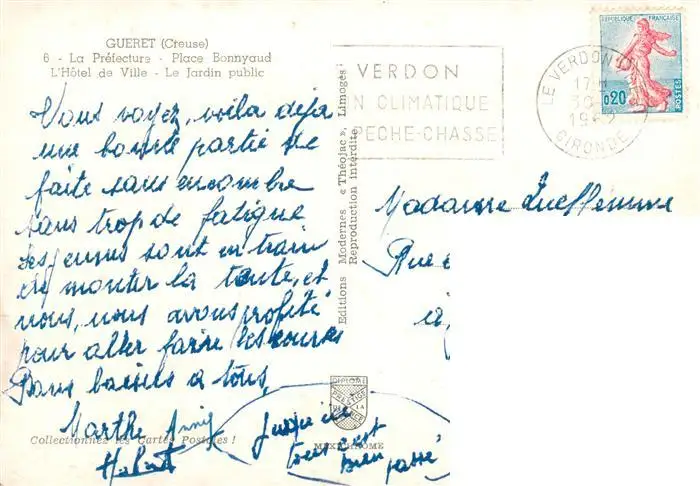 GUERET (Creuse)
6 - La Préfecture - Place Bonnyaud
L'Hôtel de Ville - Le Jardin public
Vous voyez, voila déja
une bonne partie de
faite sans encombre
sans trop de fatigue
Les jeunes sont en train
de monter la tente, et
nous, nous avons profité
pour aller faire les courses
Bons baisers a tous,
Marthe Annie
Hubert
jusqu'ici
tout c'est
bien passé
Collectionnez les Cartes Postales !
Editions Modernes « Théojac », Limoges
Reproduction interdite
DIPLOME
PRESTIGE
DE LA
FRANCE
MEXICHROME
VERDON
N CLIMATIQUE
PECHE-CHASSE
LE VERDON
17H
30
GIRONDE
REPUBLIQUE FRANÇAISE
0,20
POSTES
Madame
Rue